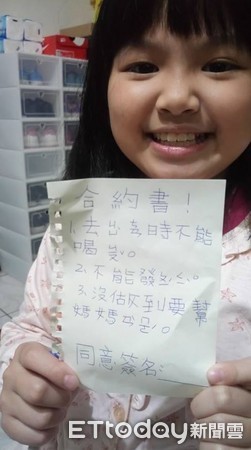 合約書!
1.去出差時不能
喝
2.不能發
3.沒 到要幫
媽媽 是。
同意簽名:
ETtoday新聞雲